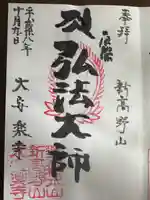 奉拝
新高野山
弘法大師
大安楽寺
平成廿八年
十月九日